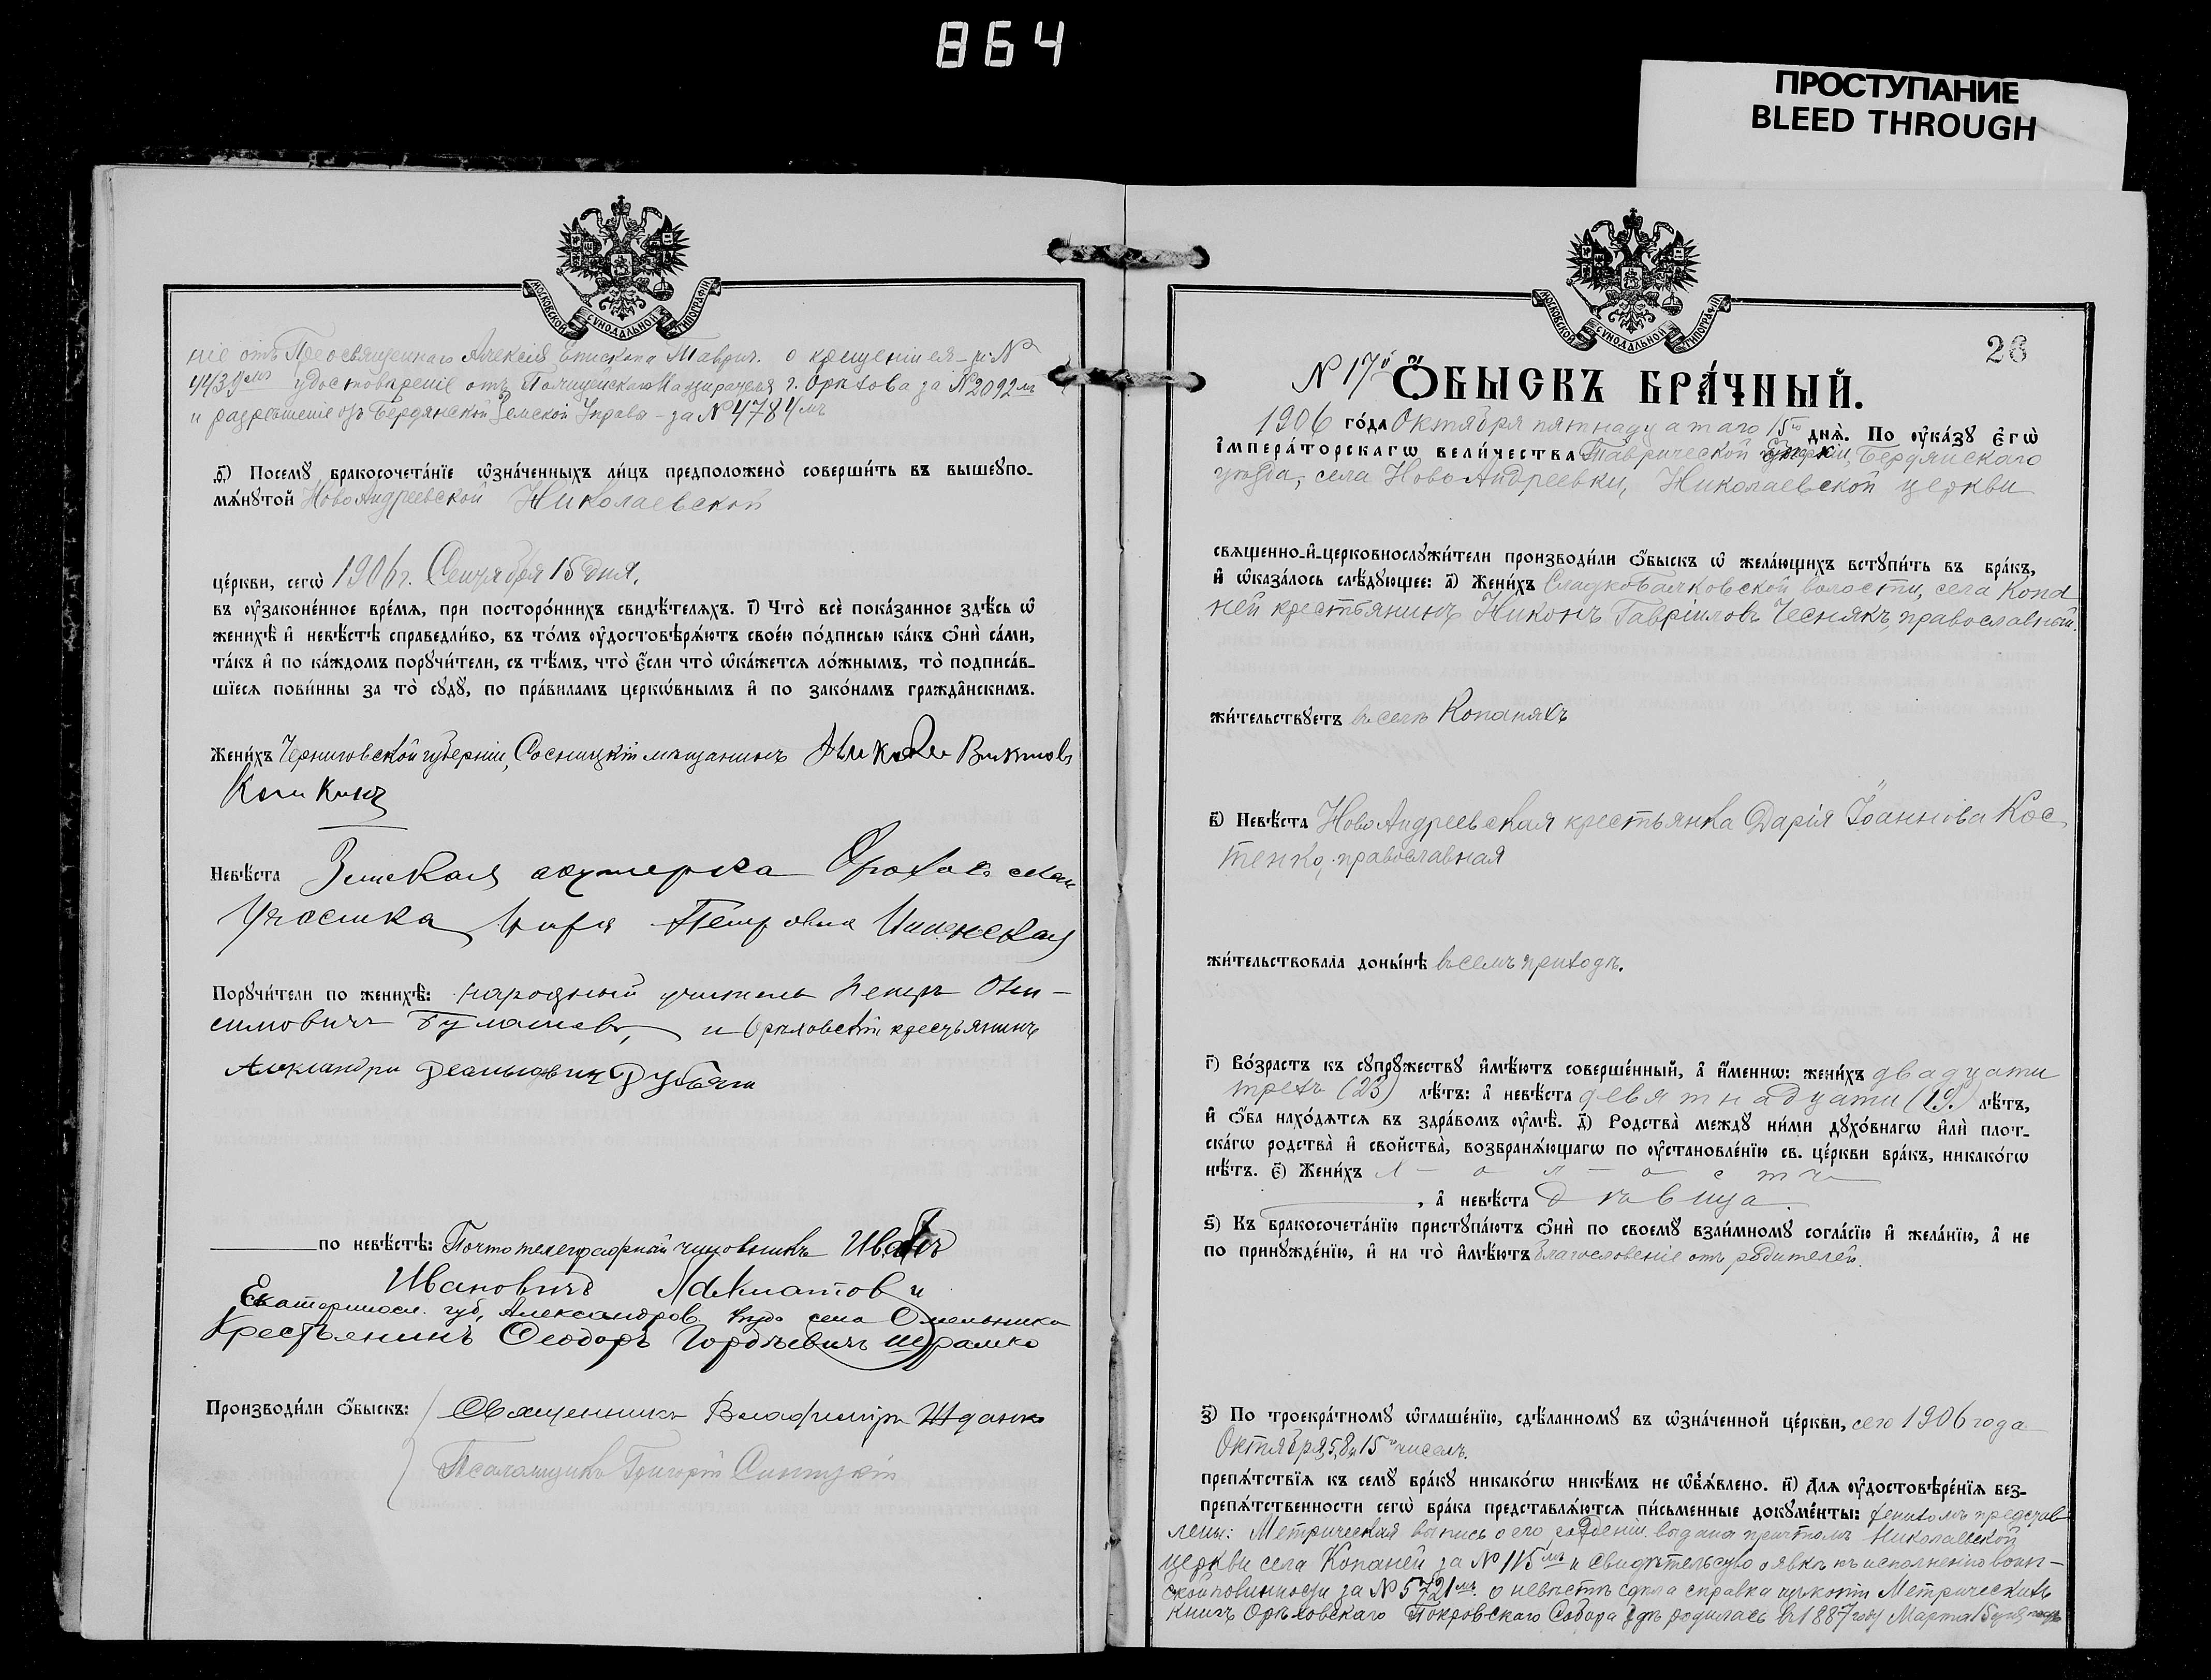 864
ПРОСТУПАНИЕ
BLEED THROUGH
МОСКОВСКОЙ СѴНОДАЛЬНОЙ ТИПОГРАФІИ
ніе отъ Преосвященнаго Алексія Епископа Таврич. о крещеніи ея - за №
4439мъ удостовѣреніе отъ Полицейскаго Надзирателя г. Орѣхова за № 2092мъ
и разрѣшеніе отъ Бердянской Земской Управы - за № 4784мъ
ѳ҃) Посемꙋ̀ бракосочета́нїе ѡ҆зна́ченныхъ ли́цъ предположено̀ соверши́ть въ вышеꙋпо-
мѧ́нꙋтой НовоАндреевской Николаевской
це́ркви, сегѡ̀ 1906 г. Сентября 15 дня.
въ ᲂу҆зако́ненное вре́мѧ, при посторо́ннихъ свидѣ́телѧхъ. і҃) Что̀ всѐ пока́занное здѣ́сь ѡ҆
женихѣ̀ и҆ невѣ́стѣ справедли́во, въ то́мъ ᲂу҆достовѣрѧ́ютъ свое́ю по́дписью ка́къ ѻ҆нѝ са́ми,
та́къ и҆ по ка́ждомъ порꙋчи́тели, съ тѣ́мъ, что̀ є҆́сли что̀ ѡ҆ка́жетсѧ ло́жнымъ, то̀ подписа́в-
шїесѧ пови́нны за то̀ сꙋдꙋ̀, по пра́виламъ церкѡ́внымъ и҆ по зако́намъ гражда̑нскимъ.
Жени́хъ Черниговской губерніи, Сосницкій мѣщанинъ Николай
Невѣ́ста Земская акушерка Орѣховскаго
Участка Петровна
Порꙋчи́тели по женихѣ̀: народный учитель Петръ Они-
симовичъ и Орѣховскій крестьянинъ
Александръ
по невѣ́стѣ: Почтотелеграфный чиновникъ Иванъ
Ивановичъ и
Екатериносл. губ., Александров. уѣзда села Омельника
Крестьянинъ Ѳеодоръ Гордѣевичъ Шрамко
Производи́ли ѻ҆́быскъ: Священникъ Владиміръ Жданко
Псаломщикъ Григорій
МОСКОВСКОЙ СѴНОДАЛЬНОЙ ТИПОГРАФІИ
26
№ 17й Ѻ҆́БЫСКЪ БРА́ЧНЫЙ.
1906 го́да Октября пятнадцатаго 15го днѧ̀. По ᲂу҆ка́зꙋ Є҆гѡ̀
І҆мпера́торскагѡ вели́чества Таврической Епархіи, Бердянскаго
уѣзда, села НовоАндреевки, Николаевской церкви
свѧщенно-и҆-церковнослꙋжи́тели производи́ли ѻ҆́быскъ ѡ҆ жела́ющихъ встꙋпи́ть въ бра́къ,
и҆ ѡ҆каза́лось слѣ́дꙋющее: а҃) Жени́хъ СладкоБалковской волости, села Копа
ней крестьянинъ Никонъ Гавріиловъ Чеснякъ, православный.
жи́тельствꙋетъ въ селѣ Копаняхъ
в҃) Невѣ́ста НовоАндреевская крестьянка Дарія Іоаннова Кос
тенко, православная
жи́тельствовала доны́нѣ въ семъ приходѣ.
г҃) Во́зрастъ къ сꙋпрꙋ́жествꙋ и҆мѣ́ютъ соверше́нный, а҆ и҆́меннѡ: жени́хъ двадцати
трехъ (23) лѣ́тъ: а҆ невѣ́ста девятнадцати (19.) лѣ́тъ,
и҆ ѻ҆́ба нахо́дѧтсѧ въ здра́вомъ ᲂу҆мѣ̀. д҃) Родства̀ междꙋ̀ ни́ми дꙋхо́внагѡ и҆лѝ плот-
ска́гѡ родства̀ и҆ свойства̀, возбранѧ́ющагѡ по ᲂу҆становле́нїю св. це́ркви бра́къ, никако́гѡ
нѣ́тъ. є҃) Жени́хъ холостъ
, а҆ невѣ́ста Дѣвица.
ѕ҃) Къ бракосочета́нїю пристꙋпа́ютъ ѻ҆нѝ по своемꙋ̀ взаи́мномꙋ согла́сїю и҆ жела́нїю, а҆ не
по принꙋжде́нїю, и҆ на то̀ и҆мѣ́ютъ благословеніе отъ родителей.
з҃) По троекра́тномꙋ ѡ҆глаше́нїю, сдѣ́ланномꙋ въ ѡ҆зна́ченной це́ркви, сего 1906 года
Октября, 5, 8 и 15го чиселъ.
препѧ́тствїѧ къ семꙋ̀ бра́кꙋ никако́гѡ никѣ́мъ не ѡ҆б̾ѧ́влено. и҃) Для ᲂу҆достовѣре́нїѧ без-
препѧ́тственности сегѡ̀ бра́ка представлѧ́ютсѧ пи́сьменные докꙋме́нты: женихомъ представ
лены: Метрическая выпись о его рожденіи, выдана причтомъ Николаевской
церкви села Копаней за № 115мъ и Свидѣтельство о явкѣ къ исполненію воин-
ской повинности за № 5721мъ. о невѣстѣ справка Метрическихъ
книгъ Орѣховскаго Покровскаго Собора гдѣ родилась въ 1887 году Марта